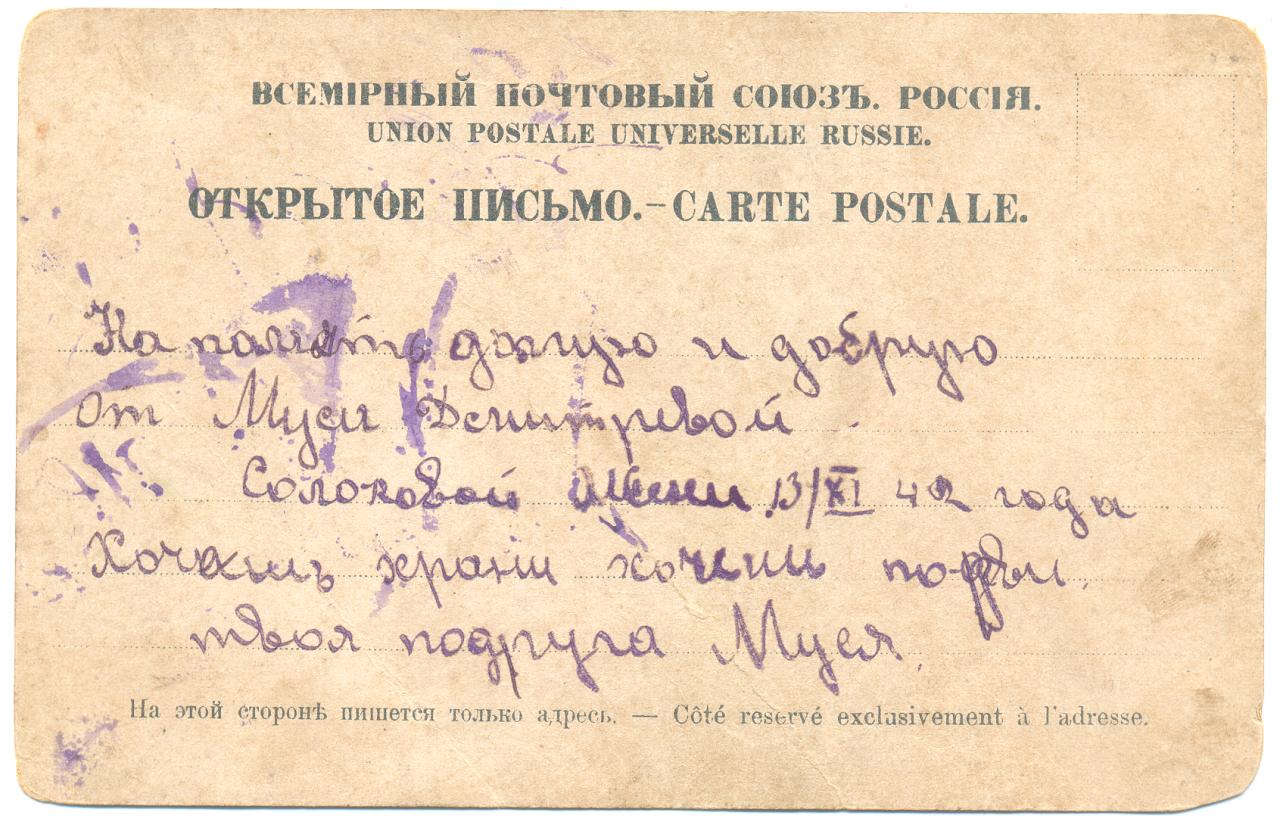 ВСЕМІРНЫЙ ПОЧТОВЫЙ СОЮЗЪ. РОССІЯ.
UNION POSTALE UNIVERSELLE RUSSIE.
ОТКРЫТОЕ ПИСЬМО.-CARTE POSTALE.
На память долгую и добрую
от Муси Дсмитревой
Солоковой 13/XI 42 года
Хочишь храни хочишь порви.
твоя подруга Муся.
На этой сторонѣ пишется только адресъ. — Côté reservé exclusivement à l'adresse.